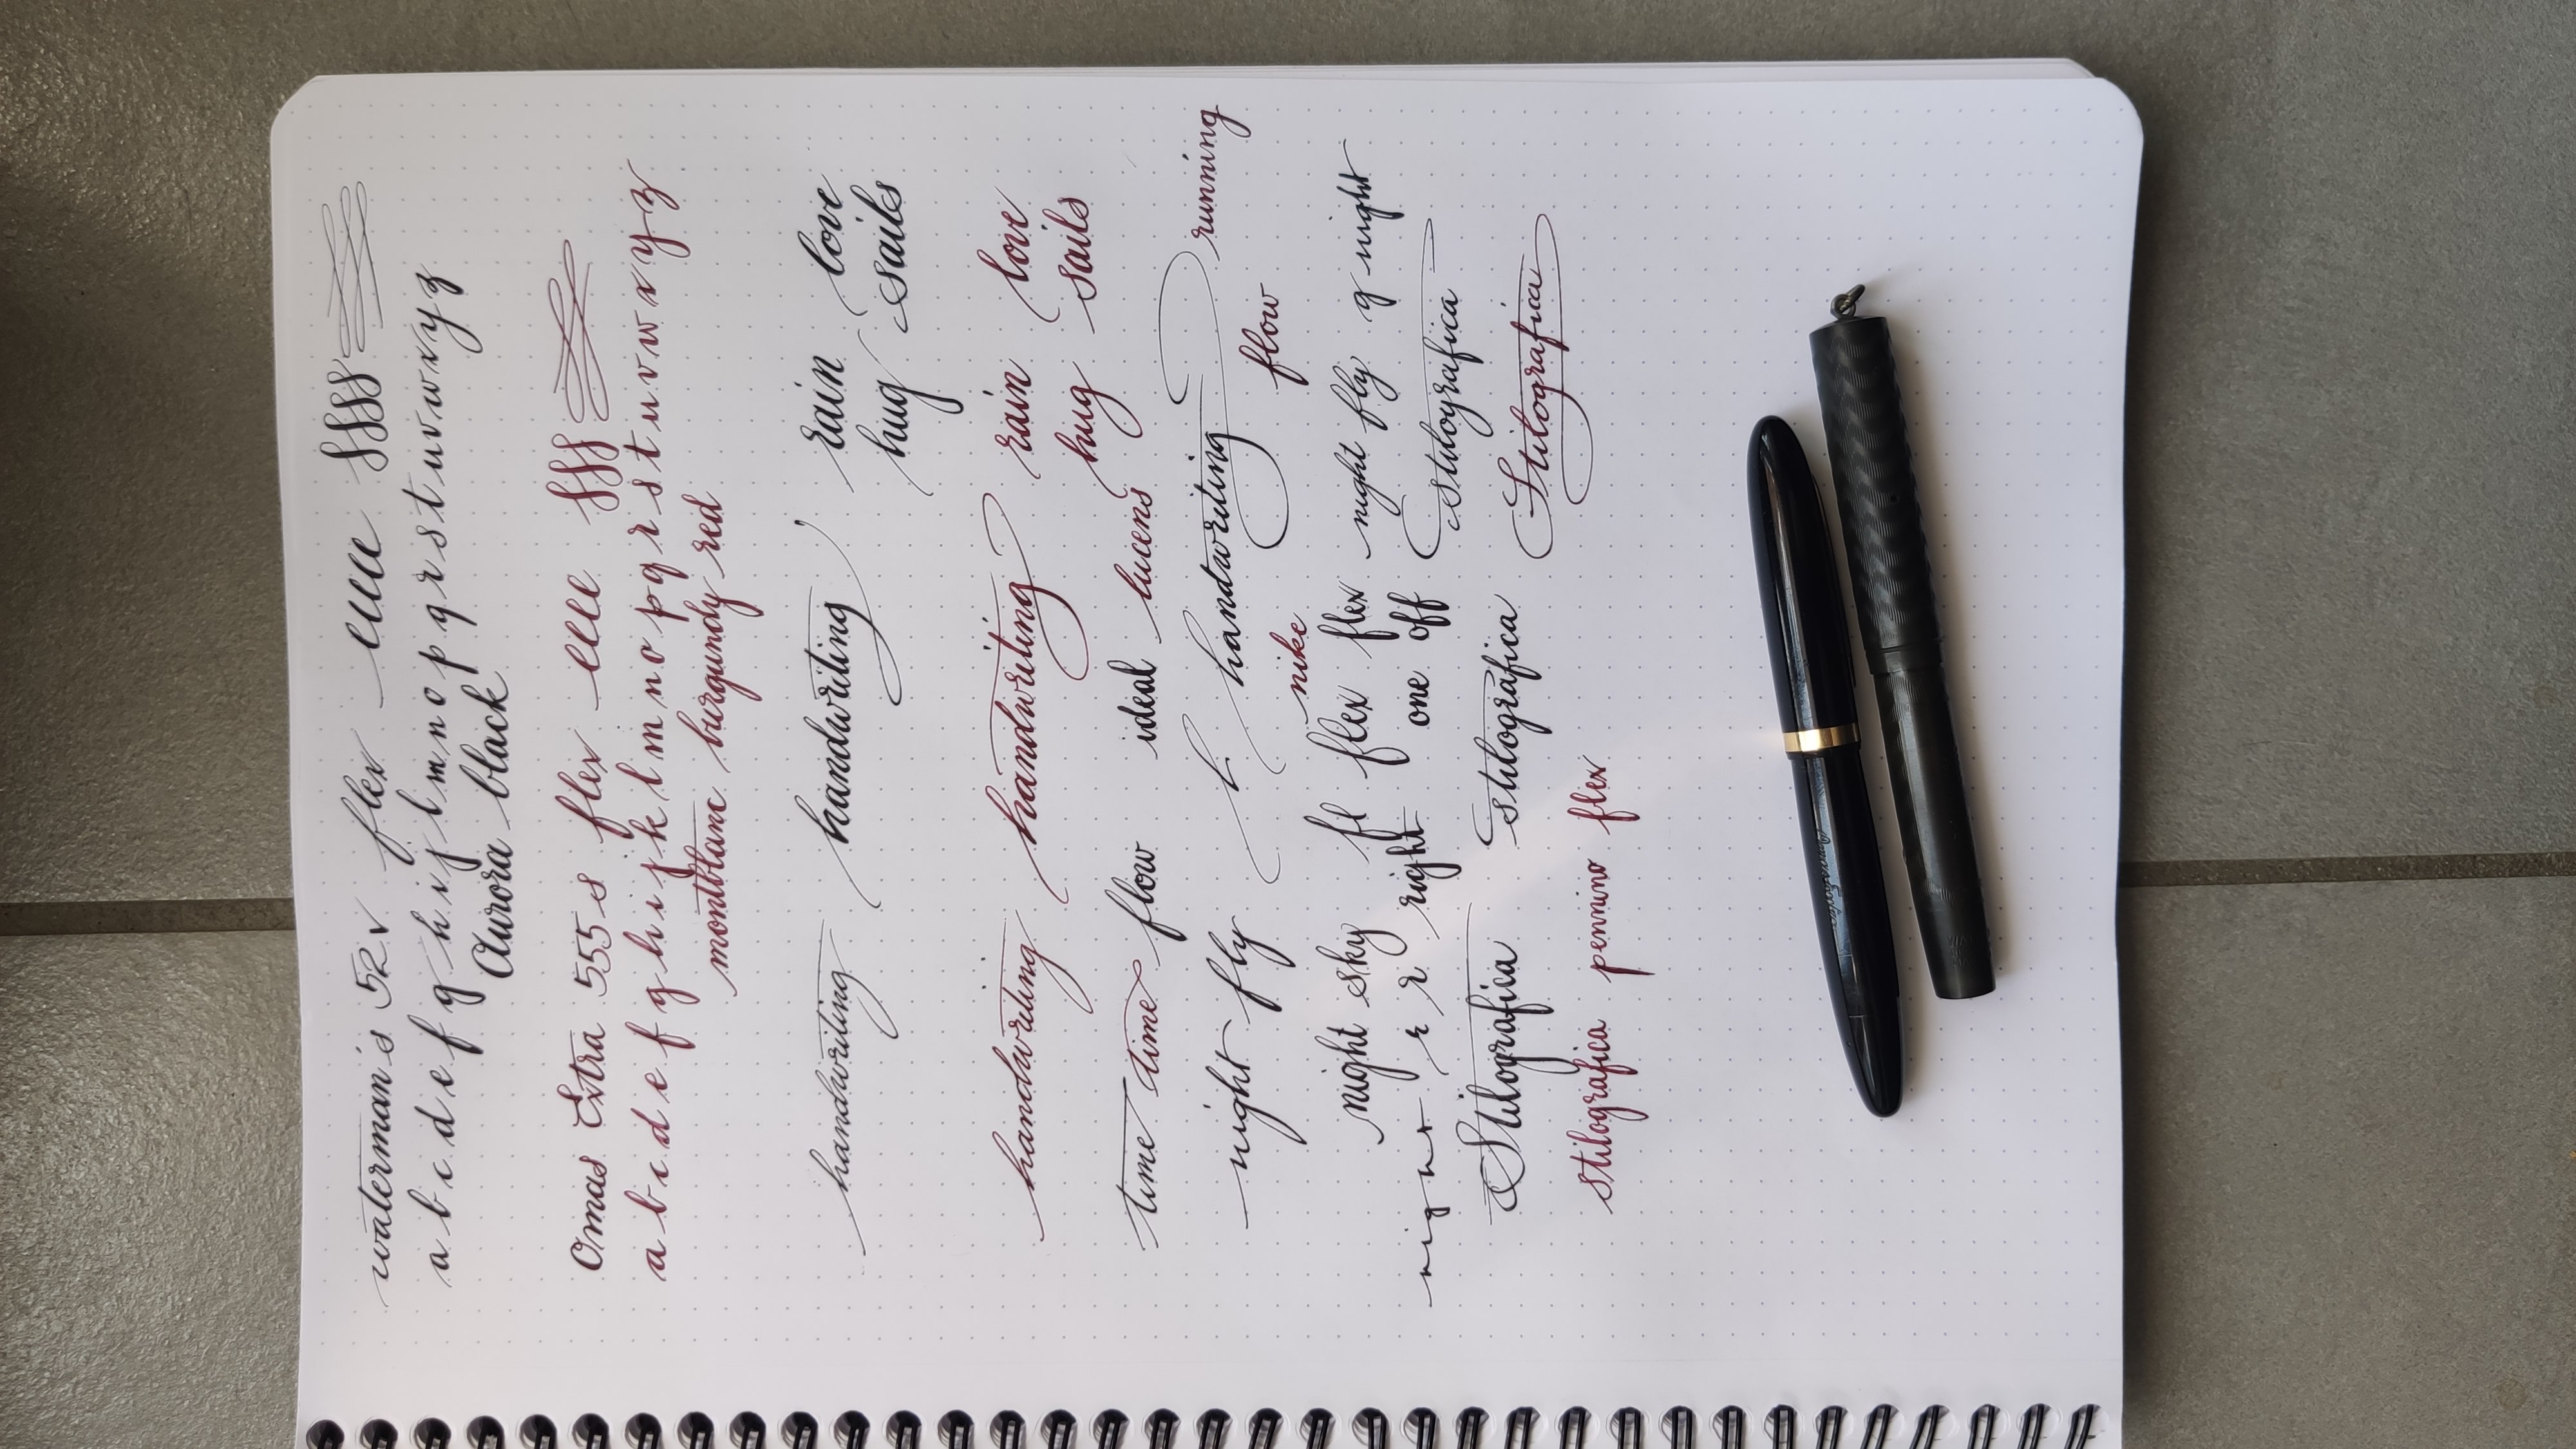 waterman's 52v flex eeee ssss
a b c d e f g h i j l m n o p q r s t u v w x y z
Aurora black
Omas Extra 555s flex elle sss
a b c d e f g h i j k l m n o p q r s t u v w x y z
montblanc burgundy red
handwriting handwriting rain love
hug sails
handwriting handwriting rain love
hug sails
time time flow ideal lucens
night fly h handwriting running
nike flow
night sky fl flex flex night fly g night
right r r right one off stilografica
Stilografica stilografica Stilografica
stilografica pennino flex